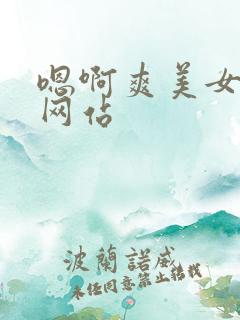 嗯啊爽美女
网佔
波蘭諾威
未经同意禁止转载